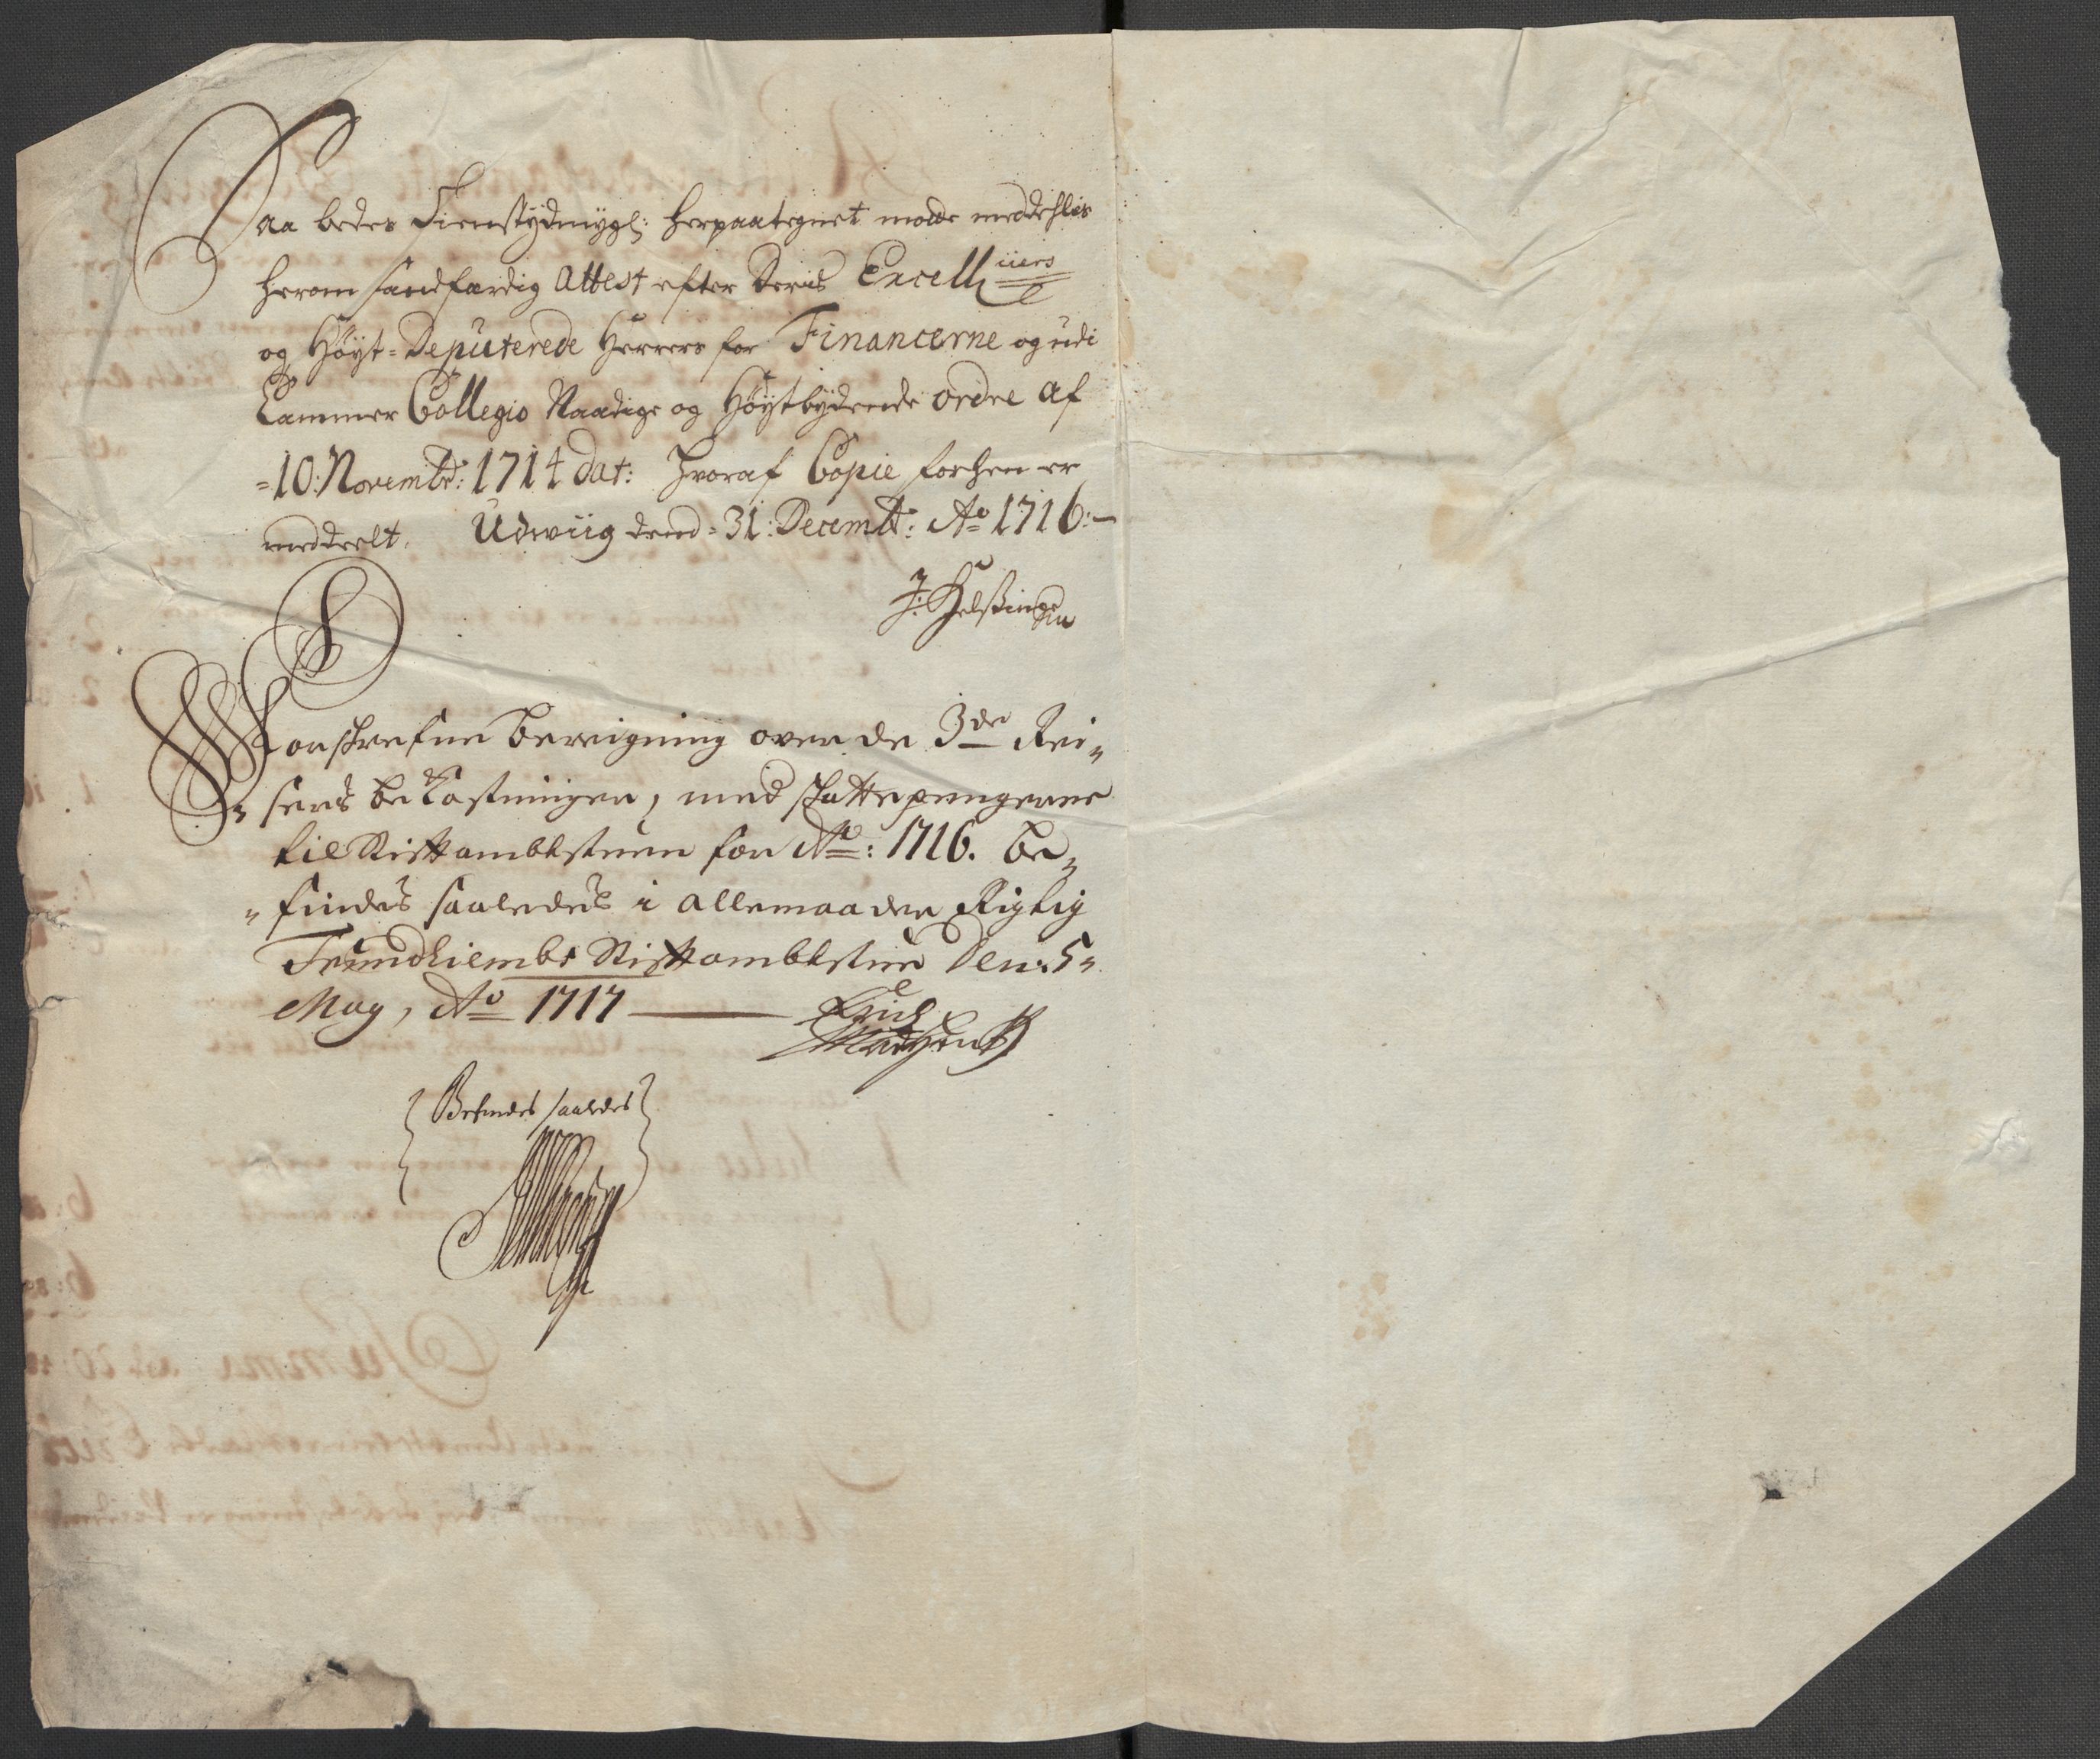 Saa bedes Tienstydmygl: herpaategnet motte meddehlis
herom sandfærdig Attest efter Deris Excell: iiers
og Høyt-Deputerede Herrers for Financerne og udi
Cammer Collegio Naadige og Høytbydende ordre af
=10: Novembr: 1714 dat: hvoraf Copie forhen er
meddeelt. Udwiig dend=31: Decembr: Ao 1716:-
J: Helsing
Forschrefne beregning over de 3de Rei„
„sers bekostninger, med schattepengerne
til Stiftambtstuen for Ao: 1716. be„
„findes saaledes i allemaader Rigtig
Trundhiembs Stiftambtstue Den: 5„
May, Ao 1717 —
Befindes saaledes